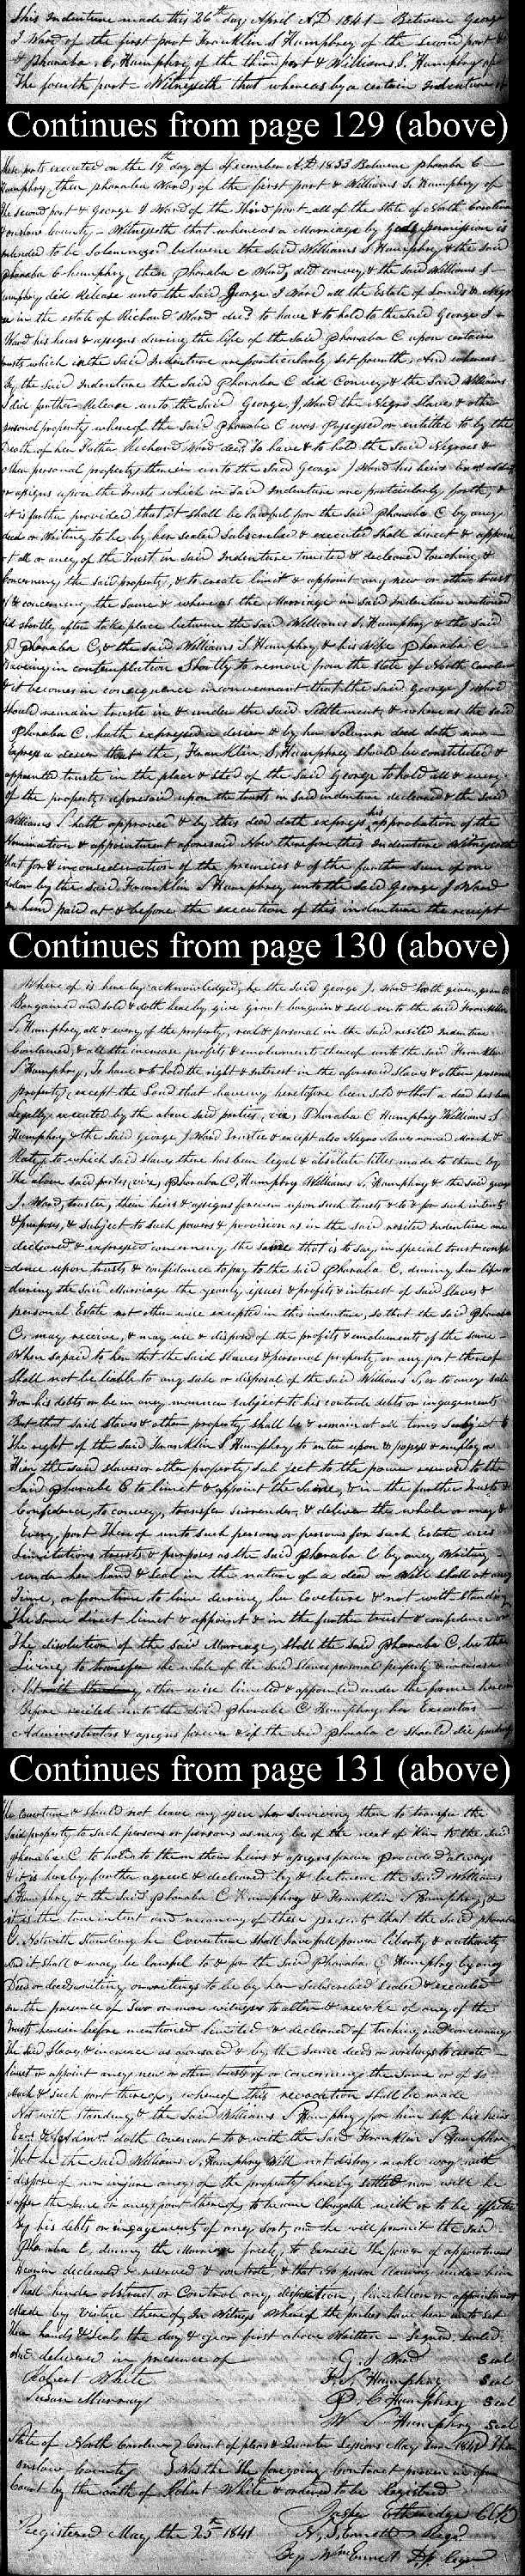 This Indenture made this 26th day April A.D 1841 - Between George
J Ward of the first part Franklin S Humphrey of the Second part &
& Phanaba C, Humphrey of the third part & Williams S. Humphrey of
The fourth part - Witnesseth that whereas by a certain Indenture of
Continues from page 129 (above)
these parts executed on the 19th day of December A.D 1833 Between Phanaba C
Humphrey (then Phanaba Ward) of the first part & Williams S. Humphrey of
the second part & George J Ward of the Third part all of the State of North Carolina
& onslow County - Witnesseth that whereas a Marriage by gods permission is
intended to be Solemnized between the said Williams S Humphrey & the said
Phanaba C Humphrey (then Phanaba C Ward) did convey & the said Williams S
umphrey did Release unto the Said George J Ward all the Estate of Lands & Negr
in the estate of Richard Ward decd to have & to hold to the Said George J
Ward his heirs & assigns during the life of the Said Phanaba C upon certain
trusts which in the Said Indenture are particularly set fourth, And whereas
by the said Indenture the said Phanaba C did Convey & the Said Williams
S did further Release unto the said George, J Ward the Negro Slaves & other
personal property whereof the said Phanaba C was Possessed or entitled to by the
Death of her Father Richard Ward decd To have & to hold the Said Negroes &
other personal property therein unto the Said George J Ward his heirs
or assigns upon the trusts which in Said Indenture are particularly forth, &
it is further provided that it shall be lawful for the said Phanaba C by any
deed or Writing to be by her sealed Subscribed & executed shall direct & appoin
t all or any of the Trust in said Indenture limited & declared touching &
Concerning the said property, & to create limit & appoint any new or other trust
of & concerning the same & whereas the Marriage in Said Indenture mentioned
did shortly after take place between the said Williams S. Humphrey & the said
Phanaba C, & the said Williams S Humphrey & his Wife Phanaba C
haveing in contemplation Shortly to remove from the State of North Carolina
& it becomes in consequence inconvenant that the said George J Ward
should remain trustee in & under the said Settlement, & whereas the said
Phanaba C. hath expressed a desire & by her Solemn deed doth now
express a desire that the, Franklin S, Humphrey should be constituted &
appointed trustee in the place & stead of the said George to hold all & every
of the property aforesaid upon the trusts in said indenture declared & the said
Williams S hath approved & by this deed doth express his approbation of the
Nomination & appointment aforesaid Now therefore this Indenture Witnesseth
that for & in consideration of the premises & of the further sum of one
dollar by the said Franklin S Humphrey unto the said George J Ward
in hand paid at & before the execution of this indenture the receipt
Continues from page 130 (above)
Where of is here by acknowledged, he the Said George J. Ward hath given, granted
Bargained and sold & doth hereby give grant bargain & sell unto the said Franklin
S. Humphrey, all & every of the property, real & personal in the said recited Indenture
Contained, & all the increase profits & emoluments thereof unto the said Franklin
S Humphrey, To have & to hold the right & interest in the aforesaid Slaves & other personal
property, except the Land that haveing heretofore been sold & that a deed has been
Legally executed by the above said parties, viz, Phanaba C Humphrey Williams S
Humphrey & the Said George J Ward Trustee & except also Negro Slaves named &
Katy to which Said Slaves there has been legal & absolute titles made to them by
The above said parties, viz, Phanaba C, Humphrey Williams S. Humphrey & the said George
J. Ward, trustee, their heirs & assigns forever upon such trusts & to & for such intents
& purposes, & subject to such powers & provision as in the said recited Indenture are
declared & expressed concerning the same that is to say in special trust confi
-dence upon trusts & confidence to pay to the said Phanaba C, during her life &
during the said Marriage the yearly issues & profits & interest of said Slaves &
personal Estate not other wise excepted in this indenture, so that the said Phanaba
C, may receive, & may use & dispose of the profits & emoluments of the same -
When so paid to her that the said slaves & personal property or any part thereof
Shall not be liable to any sale or disposal of the said Williams S, or to any sale
For his debts or be in any manner subject to his controle debts or engagements
But that said Slaves & other property shall be & remain at all times Subject to
The right of the said Franklin S Humphrey to enter upon & posses & employ or
Hire the said slaves or other property Sub ject to the power reserved to the
Said Phanaba C to limit & appoint the Same, & in the further trusts &
Confidence, to convey, transfer surrender, & deliver the whole or any &
Every part There of unto such persons or persons for such Estate uses
Limitations trusts & purposes as the said Phanaba C by any Writing
under her hand & Seal in the nature of a deed or Will shall at any
Time, or from time to time during her Coveture & not with Standing
The Same direct limit & appoint & in the further trust & confidence
The disolution of the said Marriage, shall the said Phanaba C, be then
Living to transfer the whole of the said Slaves personal property & increase
other wise limited & appointed under the forme herein
Before recited unto the said Phanaba C Humphrey her Executors
Administrators & assigns forever & if the said Phanaba C should die
Continues from page 131 (above)
the Couverture & should not leave any issue her surviving then to transfer the
Said property to such persons or persons as may be of the next of Kin to the said
Phanaba C to hold to them their heirs & assigns forever Provided always
& it is hereby further agreed & declared by & between the said Williams
S Humphrey, & the Said Phanaba C Humphrey & Franklin S Humphrey, &
it is the true intent and meaning of these presents that the said Phanaba
C. Notwith Standing he Couverture Shall have full power liberty & authority
And it shall & may be lawful to & for the said Phanaba C Humphrey by any
Deed or deeds writing or writings to be by her subscribed sealed & executed
in the presence of two or more witnesses to alter & revoke of any of the
trusts herein before mentioned limited & declared of tuching and concerning
The said Slaves & increase as aforesaid & by the same deeds or writings to create
limit or appoint any new or other trusts of or concerning the same or of so
much & such part thereof, whereof this revocation shall be made
Not with standing & the said Williams S Humphrey, for him self his heirs
Exrs & Admrs doth covenant to & with the Said Franklin S Humphrey
that he the said Williams S. Humphrey Will not destroy make way with
dispose of nor injure any of the property hereby settled nor will he
suffer the same or any part thereof to become Chargable with or to be affected
By his debts or ingagements of any sort, and he will permit the said
Phanaba C, during the Marriage freely, to Exercise the power of appointment
herein declared & reserved & controle, & that no person claiming under him
Shall hinder obstruct or Control any disposition, limitation or appointment
Made by virtue there of, In Witness Whereof the parties have here unto set
their hands & Seals the day & year first above Written - Signed, Sealed
And delivered in presence of G. J Ward Seal
Robert White F. S. Humphrey Seal
Susan Murray P. C Humphrey Seal
W S Humphrey Seal
State of North Carolina } Court of pleas & Quarter Sessions May Term 1841
onslow County } the foregoing Contract proven in open
Court by the oath of Robert White & ordered to be Registered
Jasper Etheridge Clk
Registered May the 25th 1841 Regr
By Wm Ennett D.p Regr